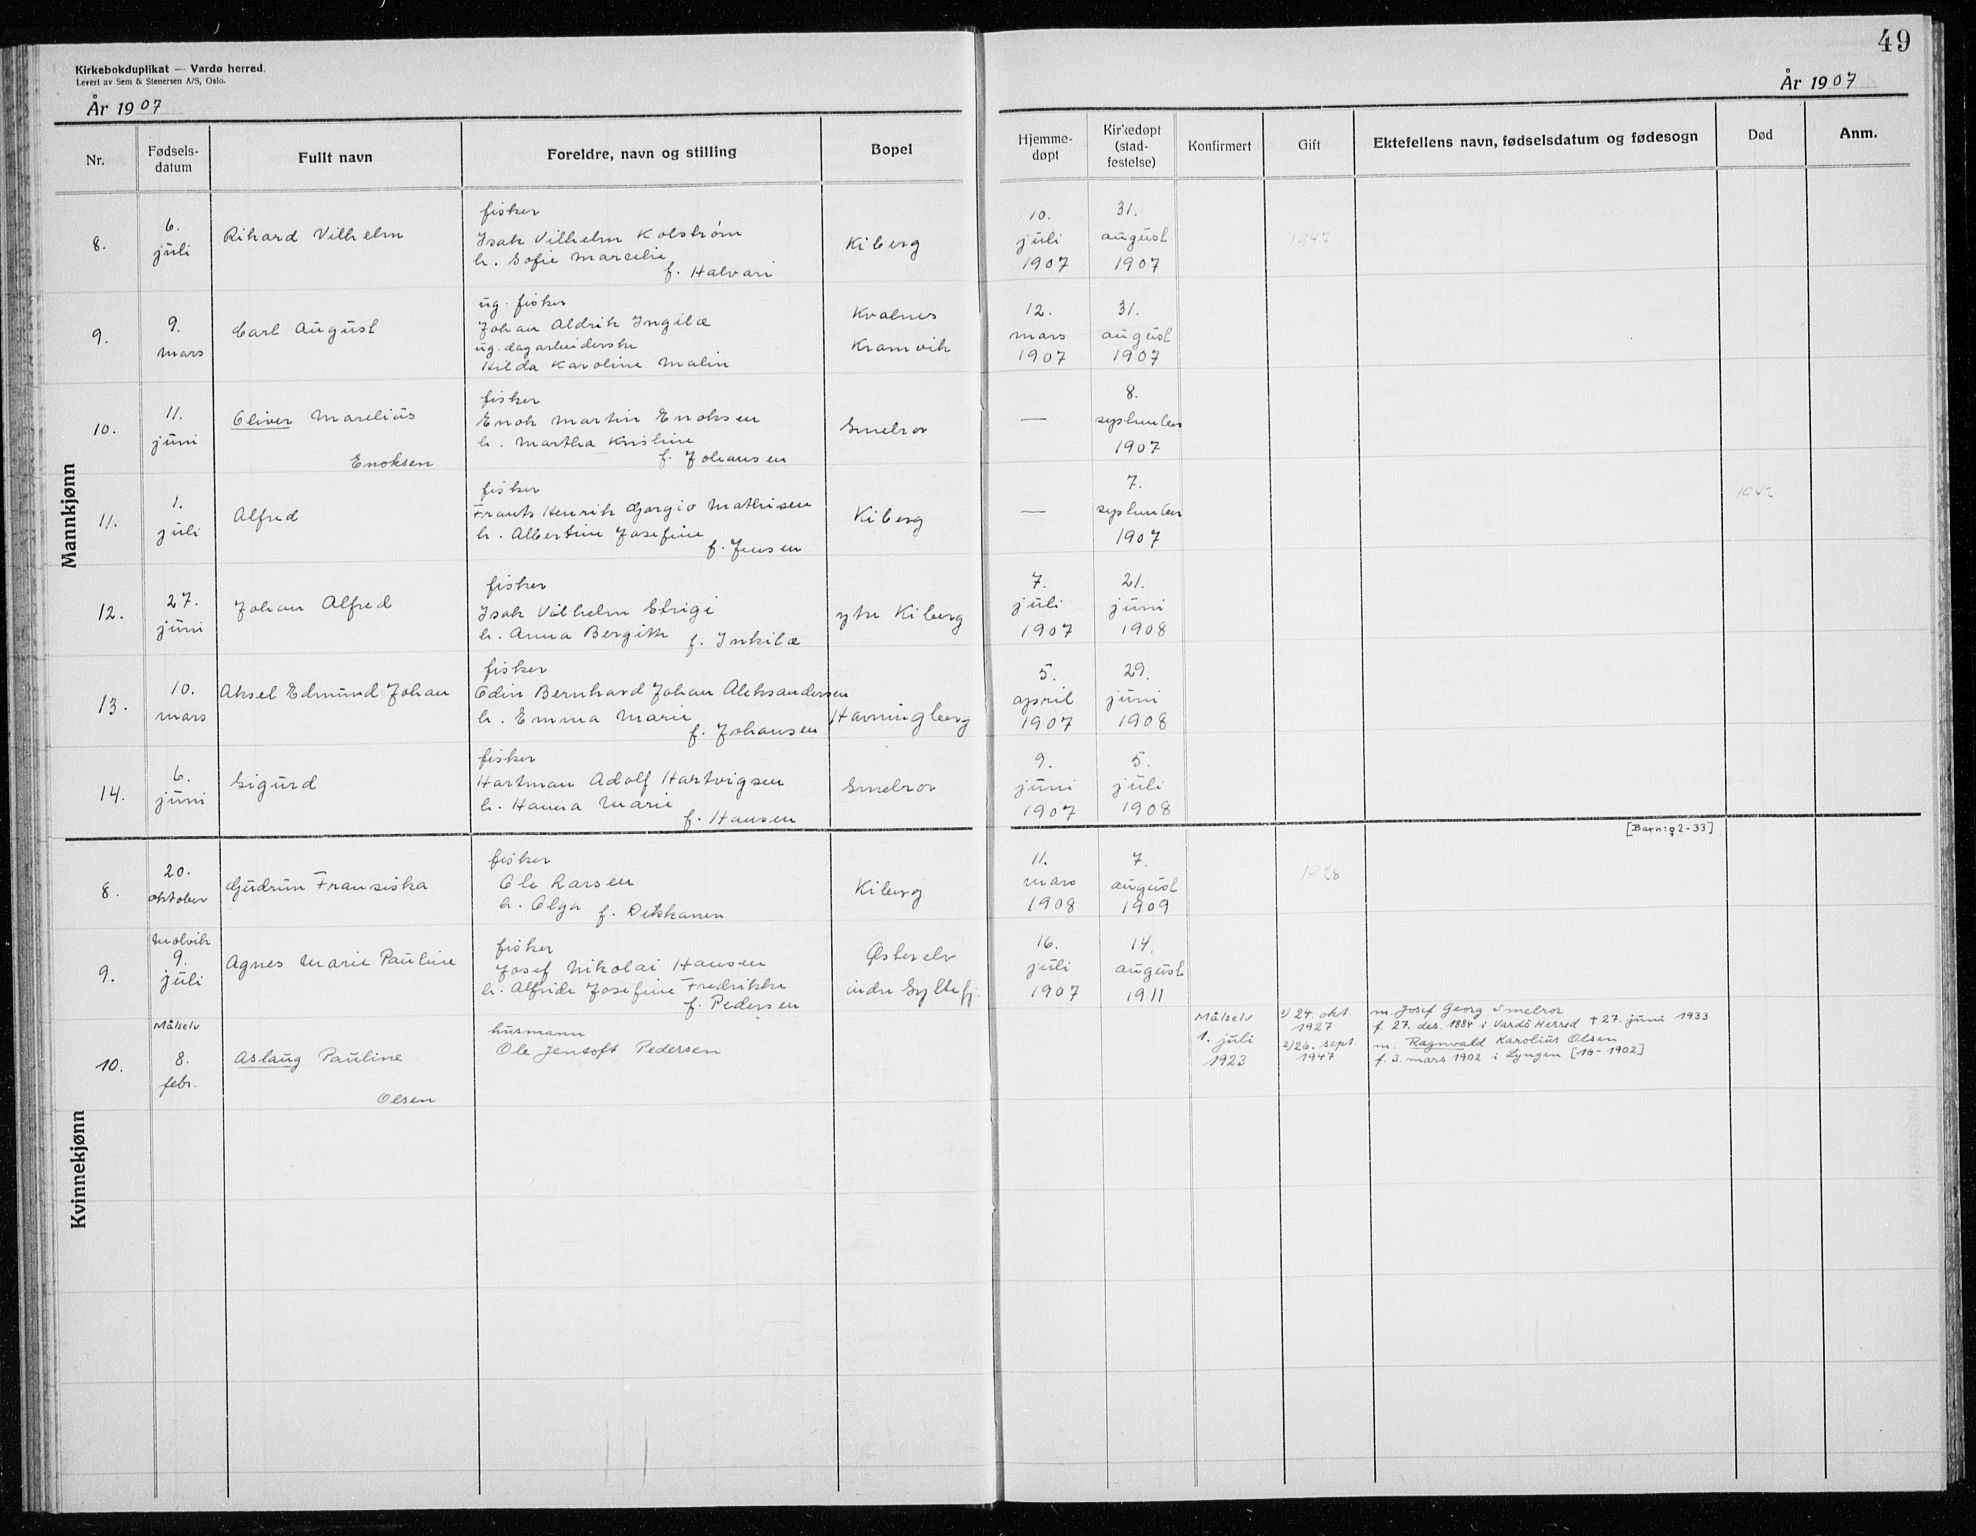 49
Kirkebokduplikat — Vardø herred.
Levert av Sem & Stenersen A/S, Oslo.
År 1907
År 1907
Nr.
Fødsels-
datum
Fullt navn
Foreldre, navn og stilling
Bopel
Hjemme-
døpt
Kirkedøpt
(stad-
festelse)
Konfirmert
Gift
Ektefellens navn, fødselsdatum og fødesogn
Død
Anm.
Mannkjønn
8.
6.
juli
Rikard Vilhelm
fisker
Isak Vilhelm Kolstrøm
h. Sofie Marselie
f. Halvari
Kiberg
10.
juli
1907
31.
august
1907
1947
9.
9.
mars
Carl August
ug. fisker
Johan Aldrik Ingilæ
ug. dagarbeiderske
Hilda Karoline Malin
Kvalnes
Kramvik
12.
mars
1907
31.
august
1907
10.
11.
juni
Oliver Marelius
Enoksen
fisker
Enok Martin Enoksen
h. Martha Kristine
f. Johansen
Smelror
—
8.
september
1907
11.
1.
juli
Alfred
fisker
Frants Henrik Gørgio Mathisen
h. Albertine Josefine
f. Jensen
Kiberg
—
7.
september
1907
1942
12.
27.
juni
Johan Alfred
fisker
Isak Vilhelm Erigi
h. Anna Bergitte f. Inkilæ
ytre Kiberg
7.
juli
1907
21.
juni
1908
13.
10.
mars
Aksel Edmund Johan
fisker
Odin Bernhard Johan Aleksandersen
h. Emma Marie
f. Johansen
Havningberg
5.
april
1907
29.
juni
1908
14.
6.
juni
Sigurd
fisker
Hartman Adolf Hartvigsen
h. Hanna Marie
f. Hansen
Smelror
9.
juni
1907
5.
juli
1908
[Barn: ♀2-33]
Kvinnekjønn
8.
20.
oktober
Gudrun Fransiska
fisker
Ole Larsen
h. Olga f. Dikkanen
Kiberg
11.
mars
1908
7.
august
1909
1928
9.
Molvik
9.
juli
Agnes Marie Pauline
fisker
Josef Nikolai Hansen
h. Alfride Josefine Fredrikke
f. Pedersen
Østerelv
indre Syltefj.
16.
juli
1907
14.
august
1911
10.
Målselv
8.
febr.
Aslaug Pauline
Olsen
husmann
Ole Jentoft Pedersen
Målselv
1. juli
1923
1) 24. okt.
1927
2) 26. sept.
1947
m. Josef Georg Smelror
f. 27. des. 1884 i Vardö Herred + 27. juni 1933
m. Ragnvald Karolius Olsen
f. 3. mars 1902 i Lyngen [16-1902]